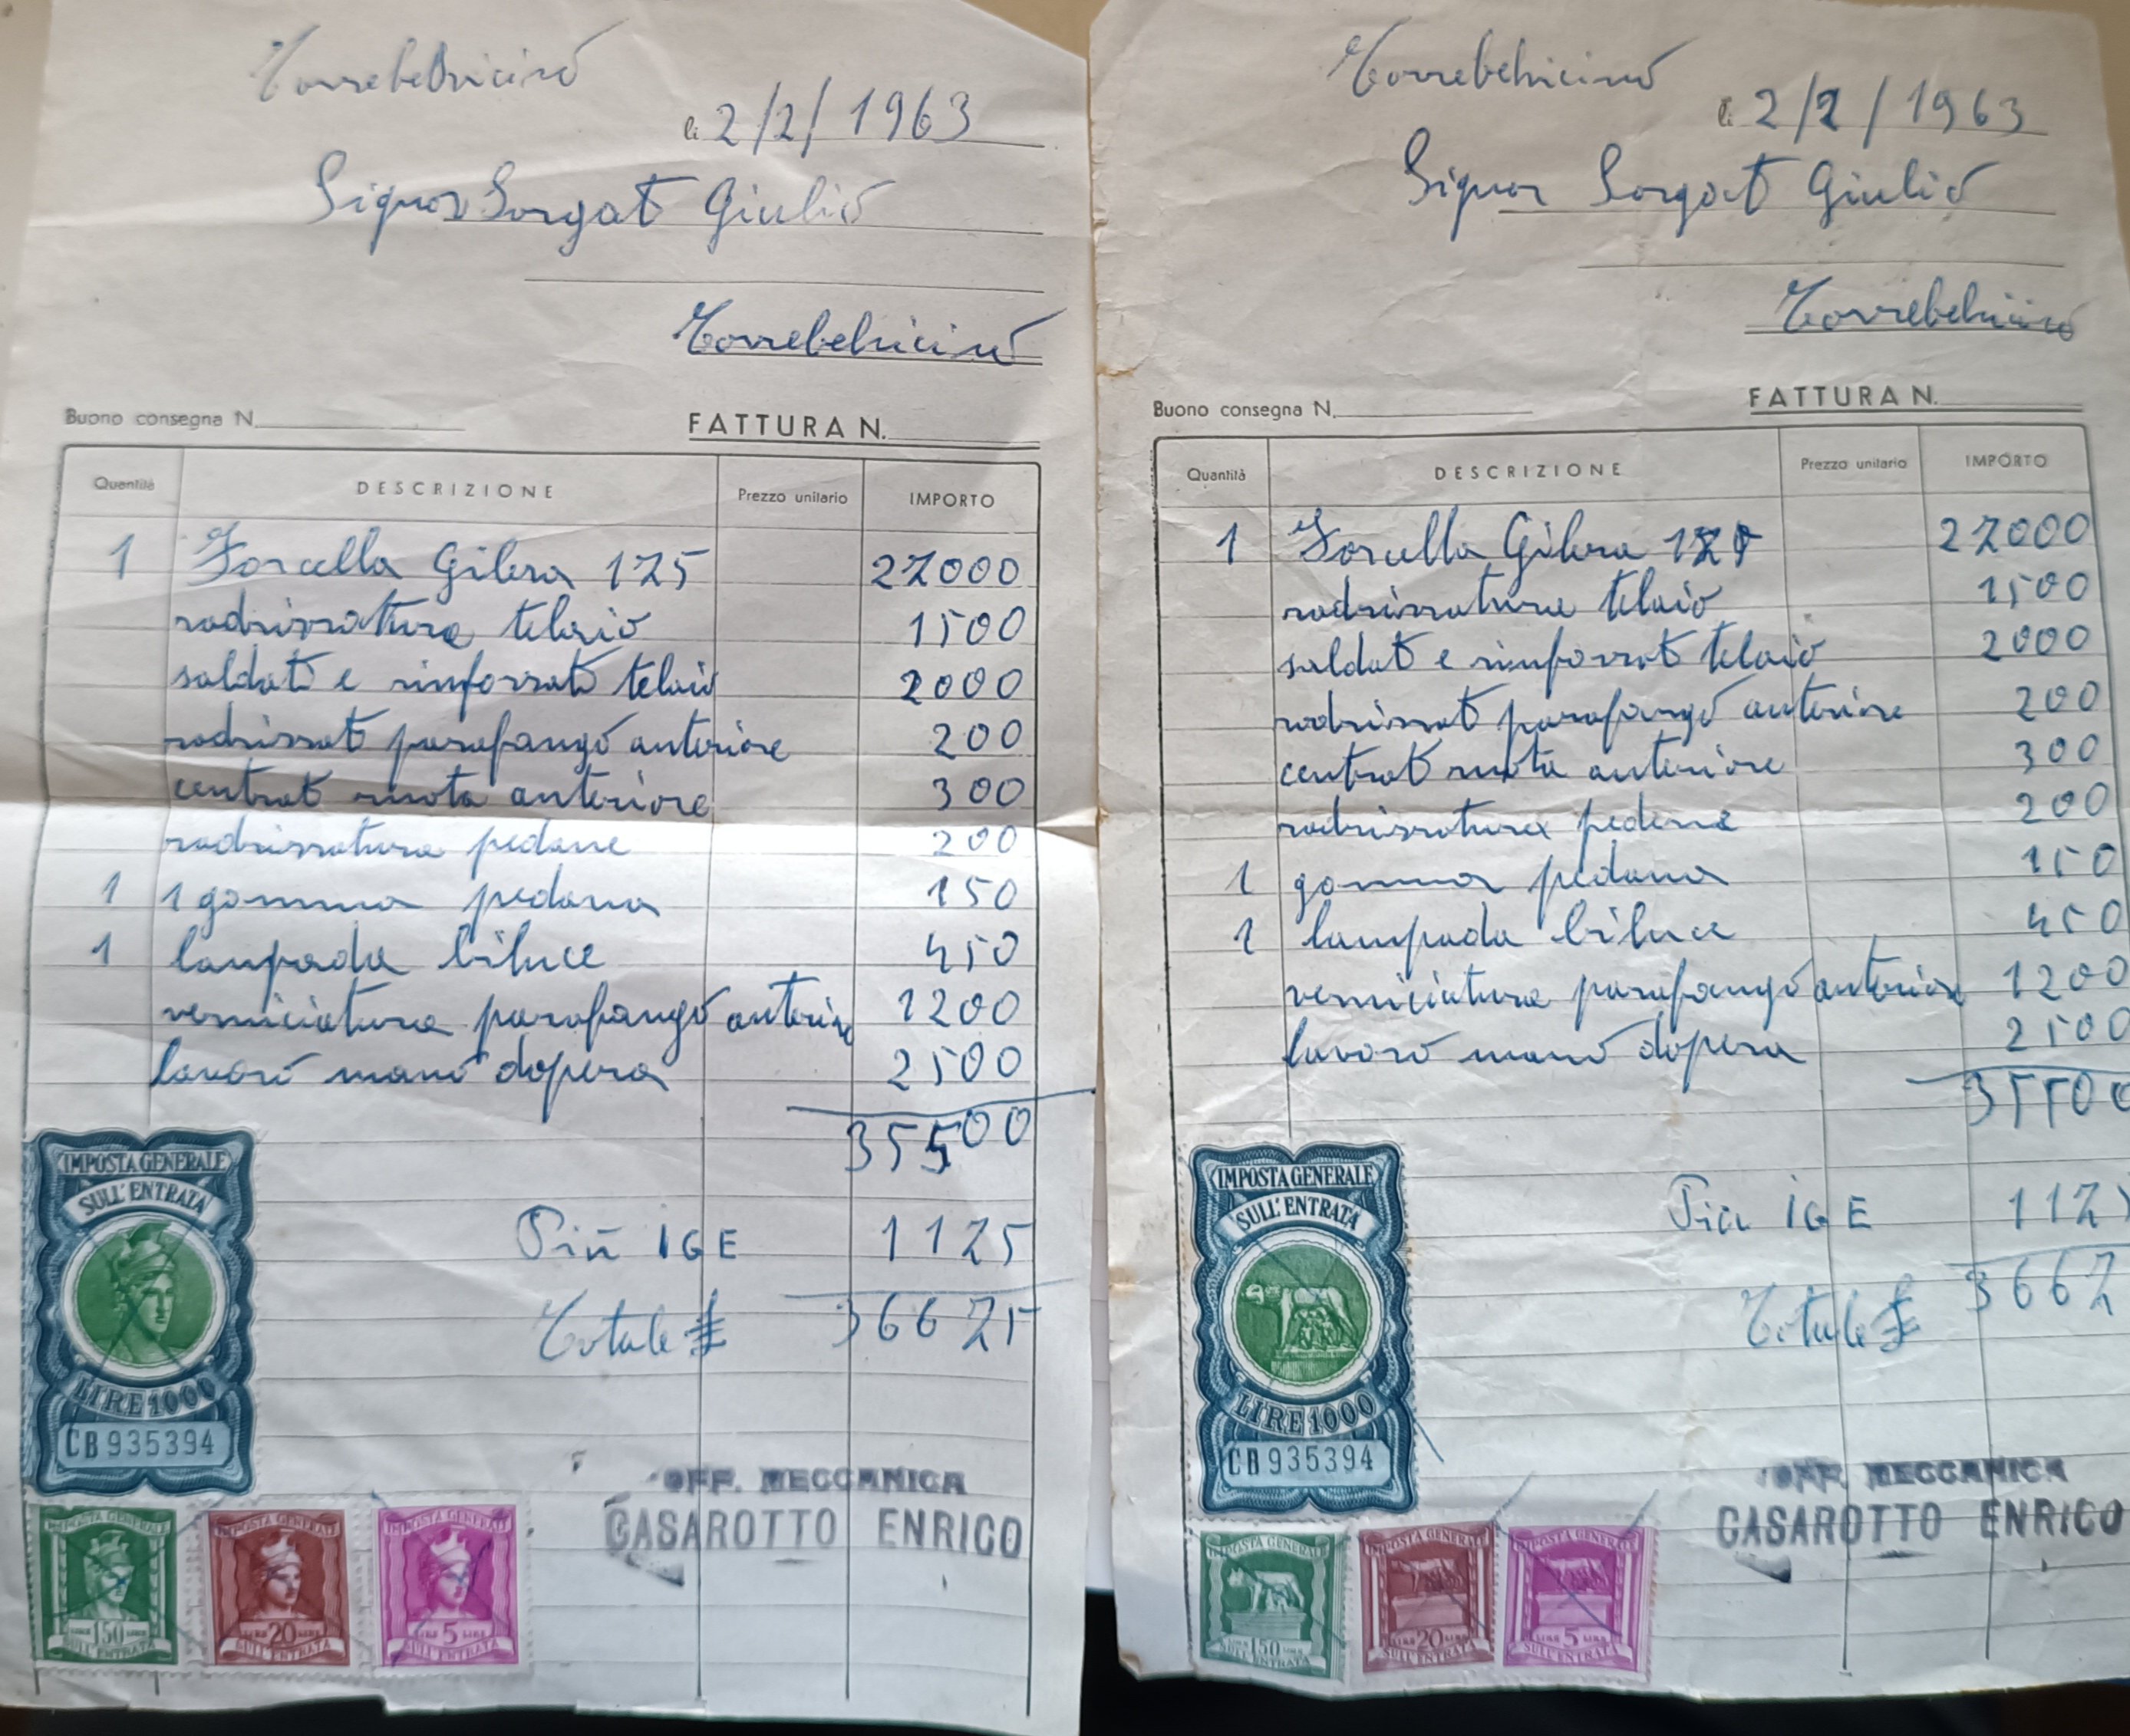 Torrebelvicino
li 2/2/1963
Signor Sorgat Giulio
Torrebelvicino
Buono consegna N.
FATTURA N.
Quantità DESCRIZIONE Prezzo unitario IMPORTO
1 Forcella Gilera 175 27000
radrissatura telaio 1500
saldat e rinforsat telaio 2000
radrissat parafango anteriore 200
centrat ruota anteriore 300
radrissatura pedane 200
1 1 gomma pedana 150
1 lampada biluce 450
verniciatura parafango anteriore 1200
lavoro mano dopera 2500
35500
Più IGE 1125
Totale £ 36625
IMPOSTA GENERALE
SULL'ENTRATA
LIRE 1000
CB 935394
OFF. MECCANICA
CASAROTTO ENRICO
IMPOSTA GENERALE IMPOSTA GENERALE IMPOSTA GENERALE
LIRE 150 LIRE LIRE 20 LIRE LIRE 5 LIRE
SULL'ENTRATA SULL'ENTRATA SULL'ENTRATA
Torrebelvicino
li 2/2/1963
Signor Sorgat Giulio
Torrebelvicino
Buono consegna N.
FATTURA N.
Quantità DESCRIZIONE Prezzo unitario IMPORTO
1 Forcella Gilera 27000
radrissatura telaio 1500
saldat e rinforsat telaio 2000
radrissat parafango anteriore 200
centrat ruota anteriore 300
radrissatura pedane 200
1 gomma pedana 150
1 lampada biluce 450
verniciatura parafango anteriore 1200
lavoro mano dopera 2500
35500
Più IGE 1125
Totale £ 3662
IMPOSTA GENERALE
SULL'ENTRATA
LIRE 1000
CB 935394
OFF. MECCANICA
CASAROTTO ENRICO
IMPOSTA GENERALE IMPOSTA GENERALE IMPOSTA GENERALE
LIRE 150 LIRE LIRE 20 LIRE LIRE 5 LIRE
SULL'ENTRATA SULL'ENTRATA SULL'ENTRATA